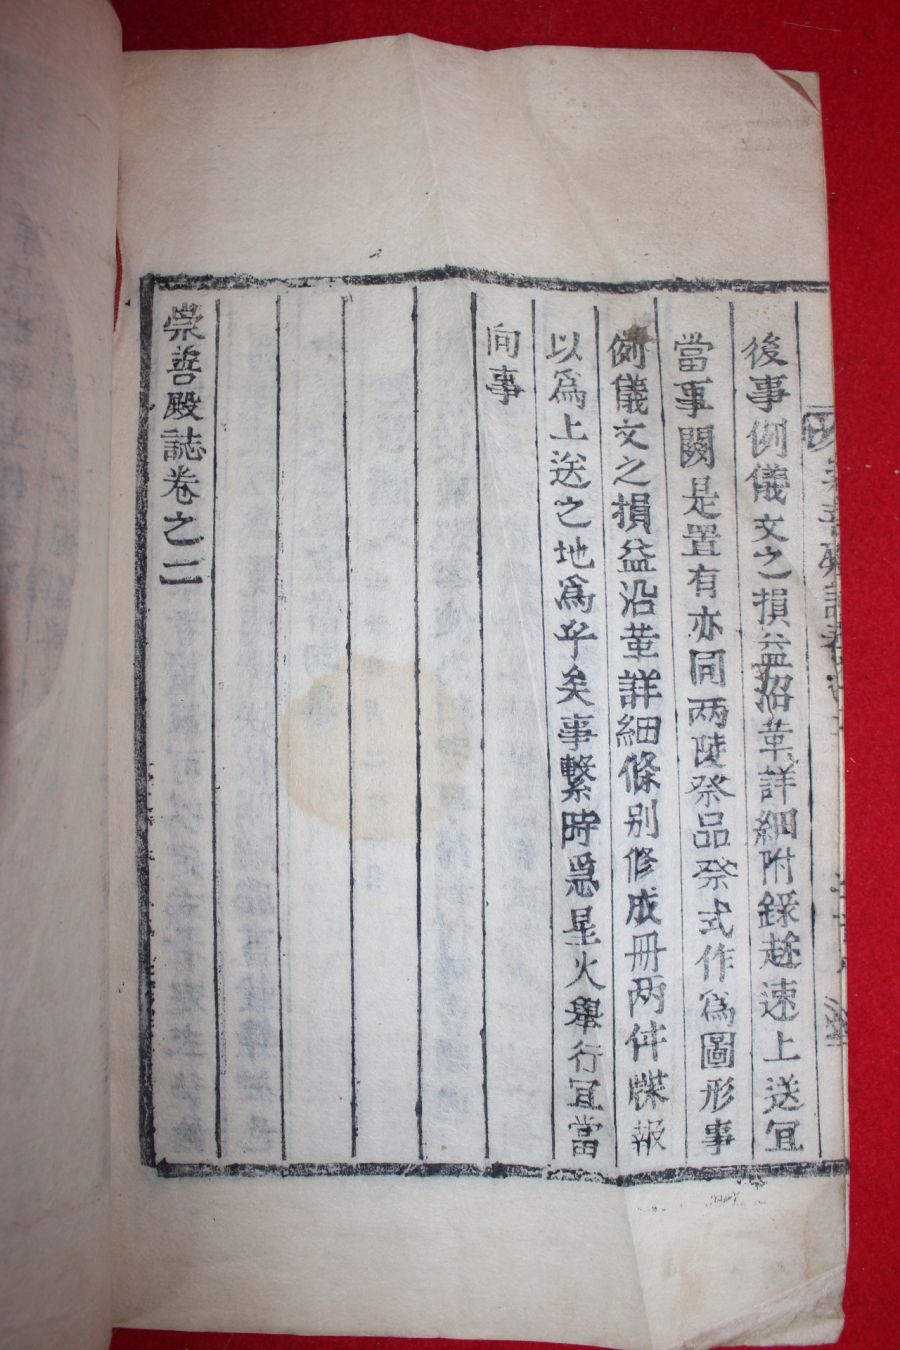 後事例儀文之損益沿革詳細附錄趁速上送宜
當事闕是置有亦同兩陵祭品祭式作爲圖形事
例儀文之損益沿革詳細條別修成冊兩件牒報
以爲上送之地爲乎矣事繫時急星火擧行宜當
向事
崇善殿誌卷之二